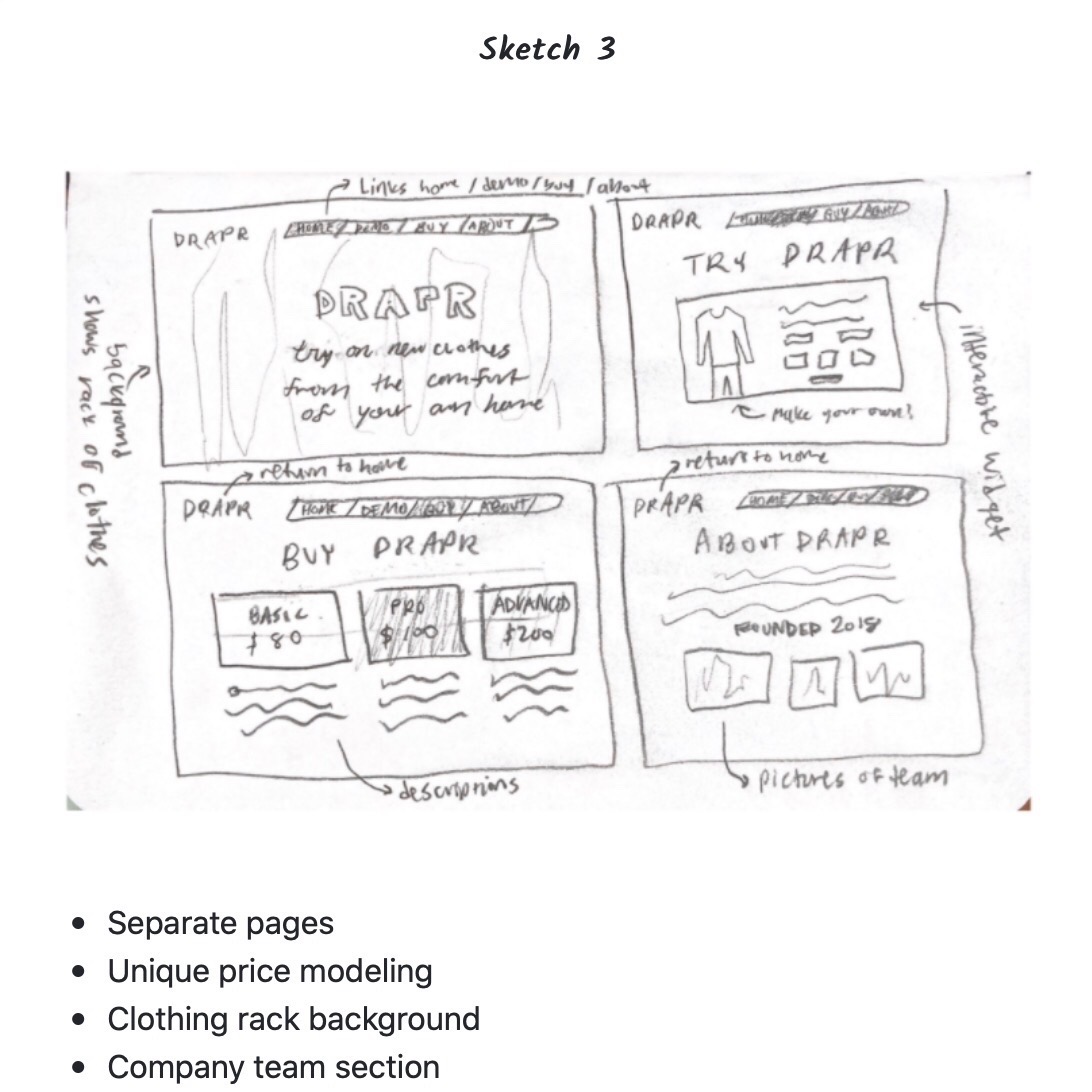 Sketch 3
Links home / demo / buy / about
DRAPR
HOME / DEMO / BUY / ABOUT
DRAPR
try on new clothes
from the comfort
of your own home
background
shows rack of clothes
DRAPR
BUY / ABOUT
TRY DRAPR
Make your own!
interactive widget
return to home
DRAPR
HOME / DEMO / BUY / ABOUT /
BUY DRAPR
BASIC
$80
PRO
$100
ADVANCED
$200
descriptions
return to home
DRAPR
HOME /
ABOUT DRAPR
FOUNDED 2018
pictures of team
• Separate pages
• Unique price modeling
• Clothing rack background
• Company team section